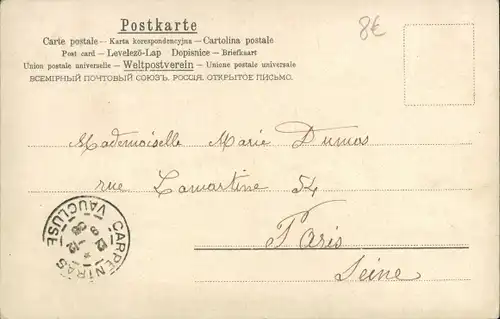 Postkarte
8€
Carte postale — Karta korespondencyjna — Cartolina postale
Post card — Levelező-Lap Dopisnice — Briefkaart
Union postale universelle — Weltpostverein — Unione postale universale
ВСЕМІРНЫЙ ПОЧТОВЫЙ СОЮЗЪ. РОССІЯ. ОТКРЫТОЕ ПИСЬМО.
Mademoiselle Marie Dumas
rue Lamartine 54
Paris
Seine
CARPENTRAS
VAUCLUSE